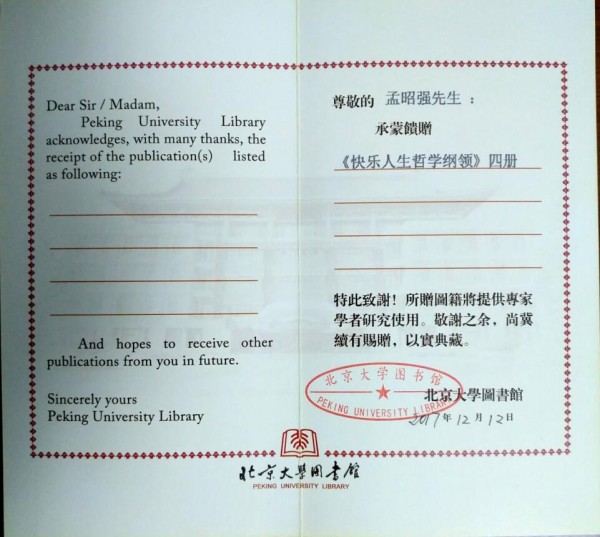 Dear Sir / Madam,
Peking University Library
acknowledges, with many thanks, the
receipt of the publication(s) listed
as following:
And hopes to receive other
publications from you in future.
Sincerely yours
Peking University Library
尊敬的 孟昭强先生：
承蒙饋贈
《快乐人生哲学纲领》四册
特此致謝！所贈圖籍將提供專家
學者研究使用。敬謝之余，尚冀
續有賜贈，以實典藏。
北京大学图书馆
PEKING UNIVERSITY LIBRARY
北京大學圖書館
2017年12月12日
北京大學圖書館
PEKING UNIVERSITY LIBRARY